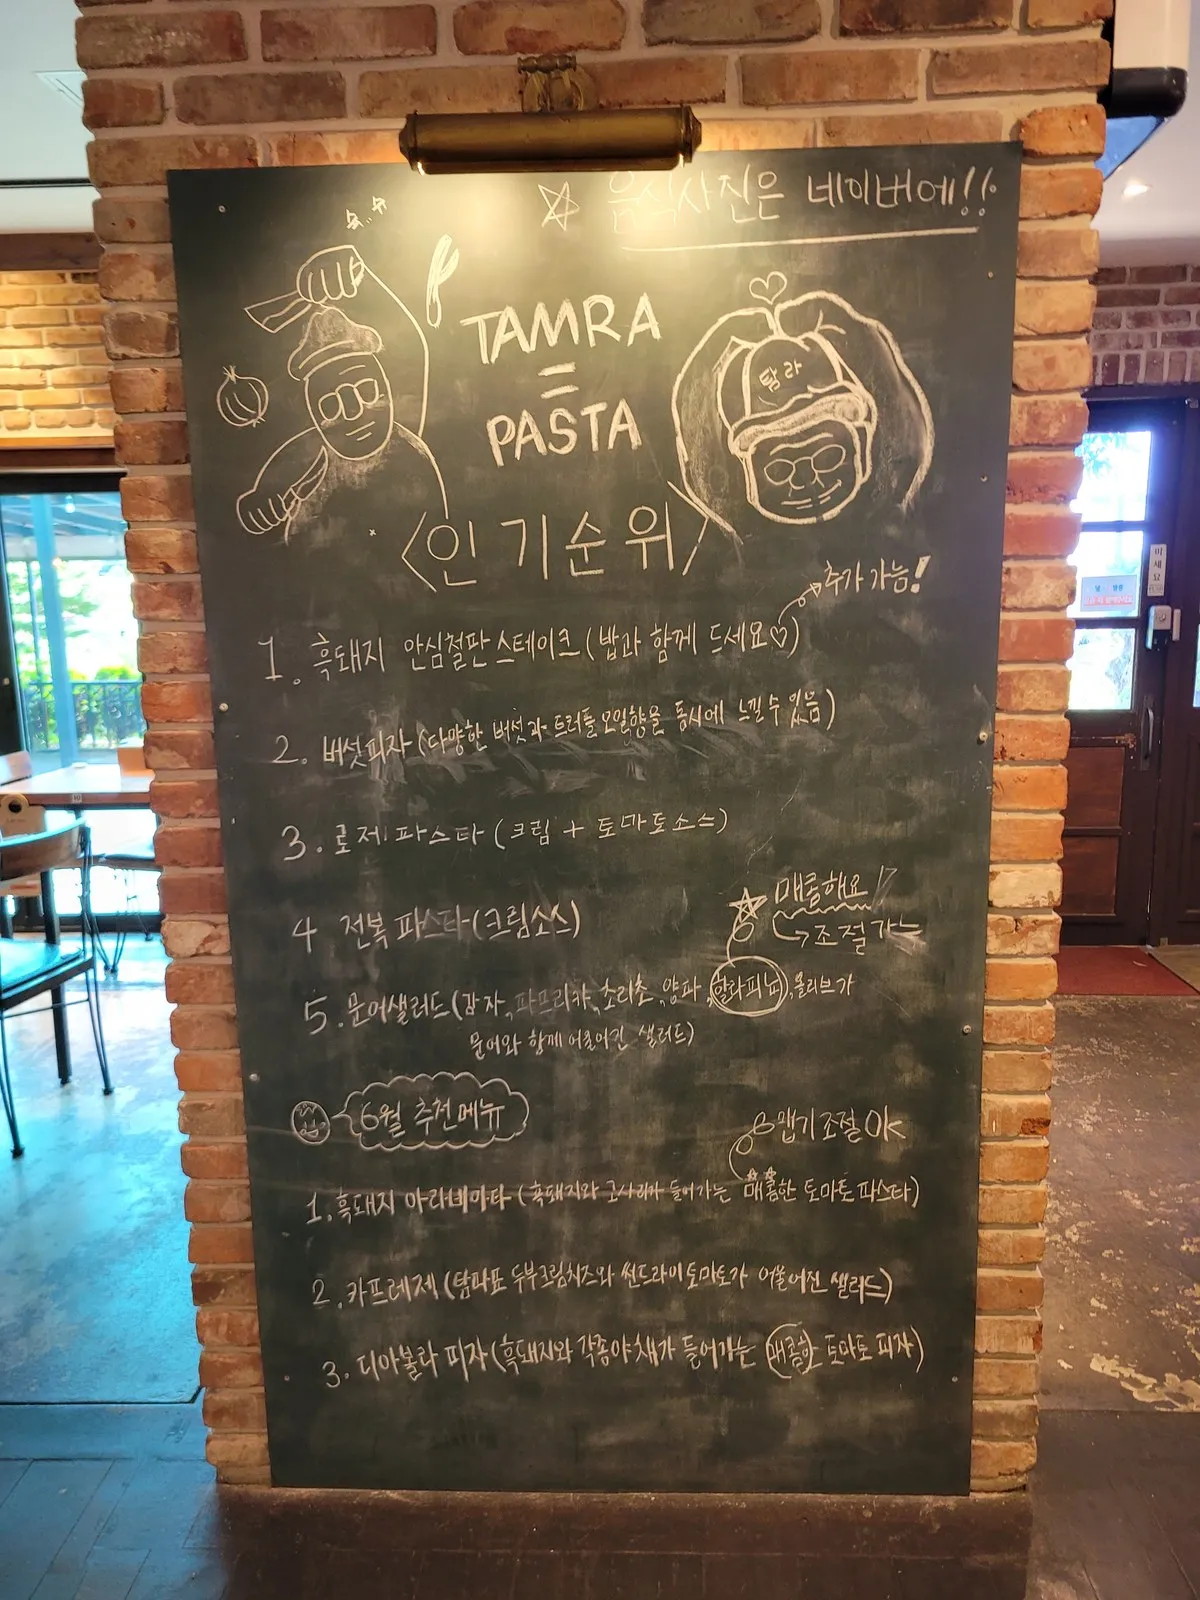 음식사진은 네이버에!!
슉..슉
TAMRA
=
PASTA
탐라
<인기순위>
추가 가능!
1. 흑돼지 안심철판 스테이크 (밥과 함께 드세요♡)
2. 버섯피자 (다양한 버섯과 트러플 오일향을 동시에 느낄 수 있음)
3. 로제 파스타 (크림 + 토마토소스)
4 전복 파스타 (크림소스)
매콤해요!
→조절가능
5. 문어샐러드 (감자, 파프리카, 초리초, 양파, 할라피뇨, 올리브가
문어와 함께 어울어진 샐러드)
6월 추천메뉴
맵기조절OK
1. 흑돼지 아라비아타 (흑돼지와 고사리가 들어가는 매콤한 토마토 파스타)
2. 카프레제 (탐파표 두부크림치즈와 썬드라이토마토가 어울어진 샐러드)
3. 디아볼라 피자 (흑돼지와 각종야채가 들어가는 매콤한 토마토 피자)
미세요